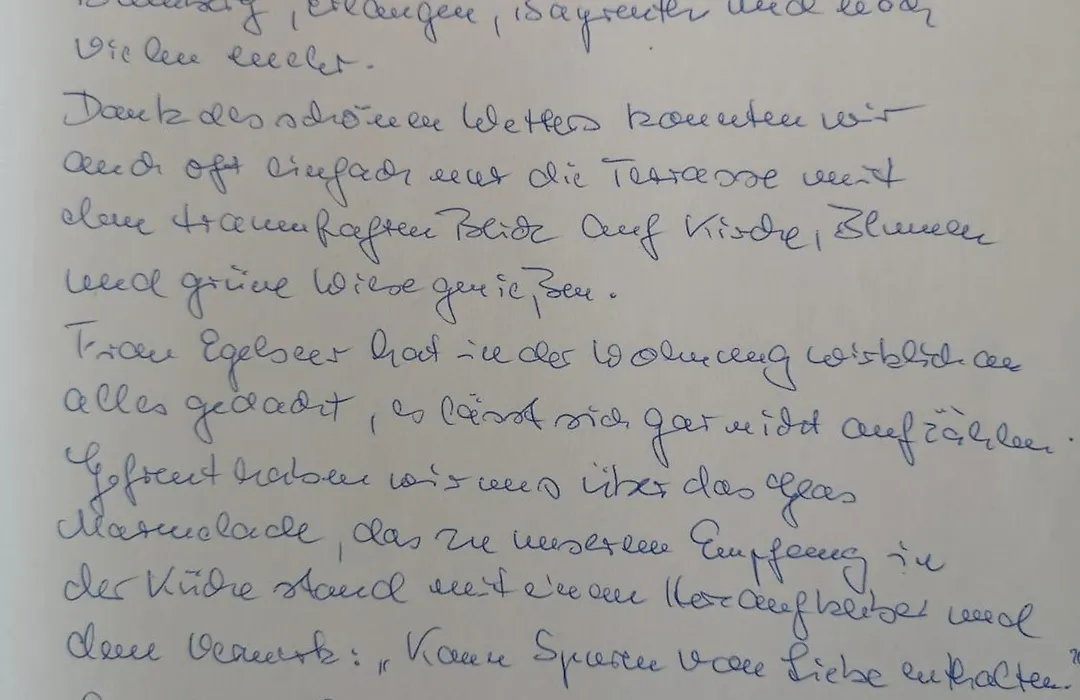 Bamberg, Erlangen, Bayreuth und noch
vielem mehr.
Dank des schönen Wetters konnten wir
auch oft einfach nur die Terrasse mit
dem traumhaften Blick auf Kirche, Blumen
und grüne Wiese genießen.
Frau Egelseer hat in der Wohnung wirklich an
alles gedacht, es lässt sich gar nicht aufzählen.
Gefreut haben wir uns über das Glas
Marmelade, das zu unserem Empfang in
der Küche stand mit einem Herzaufkleber und
dem Vermerk: „Kann Spuren von Liebe enthalten."